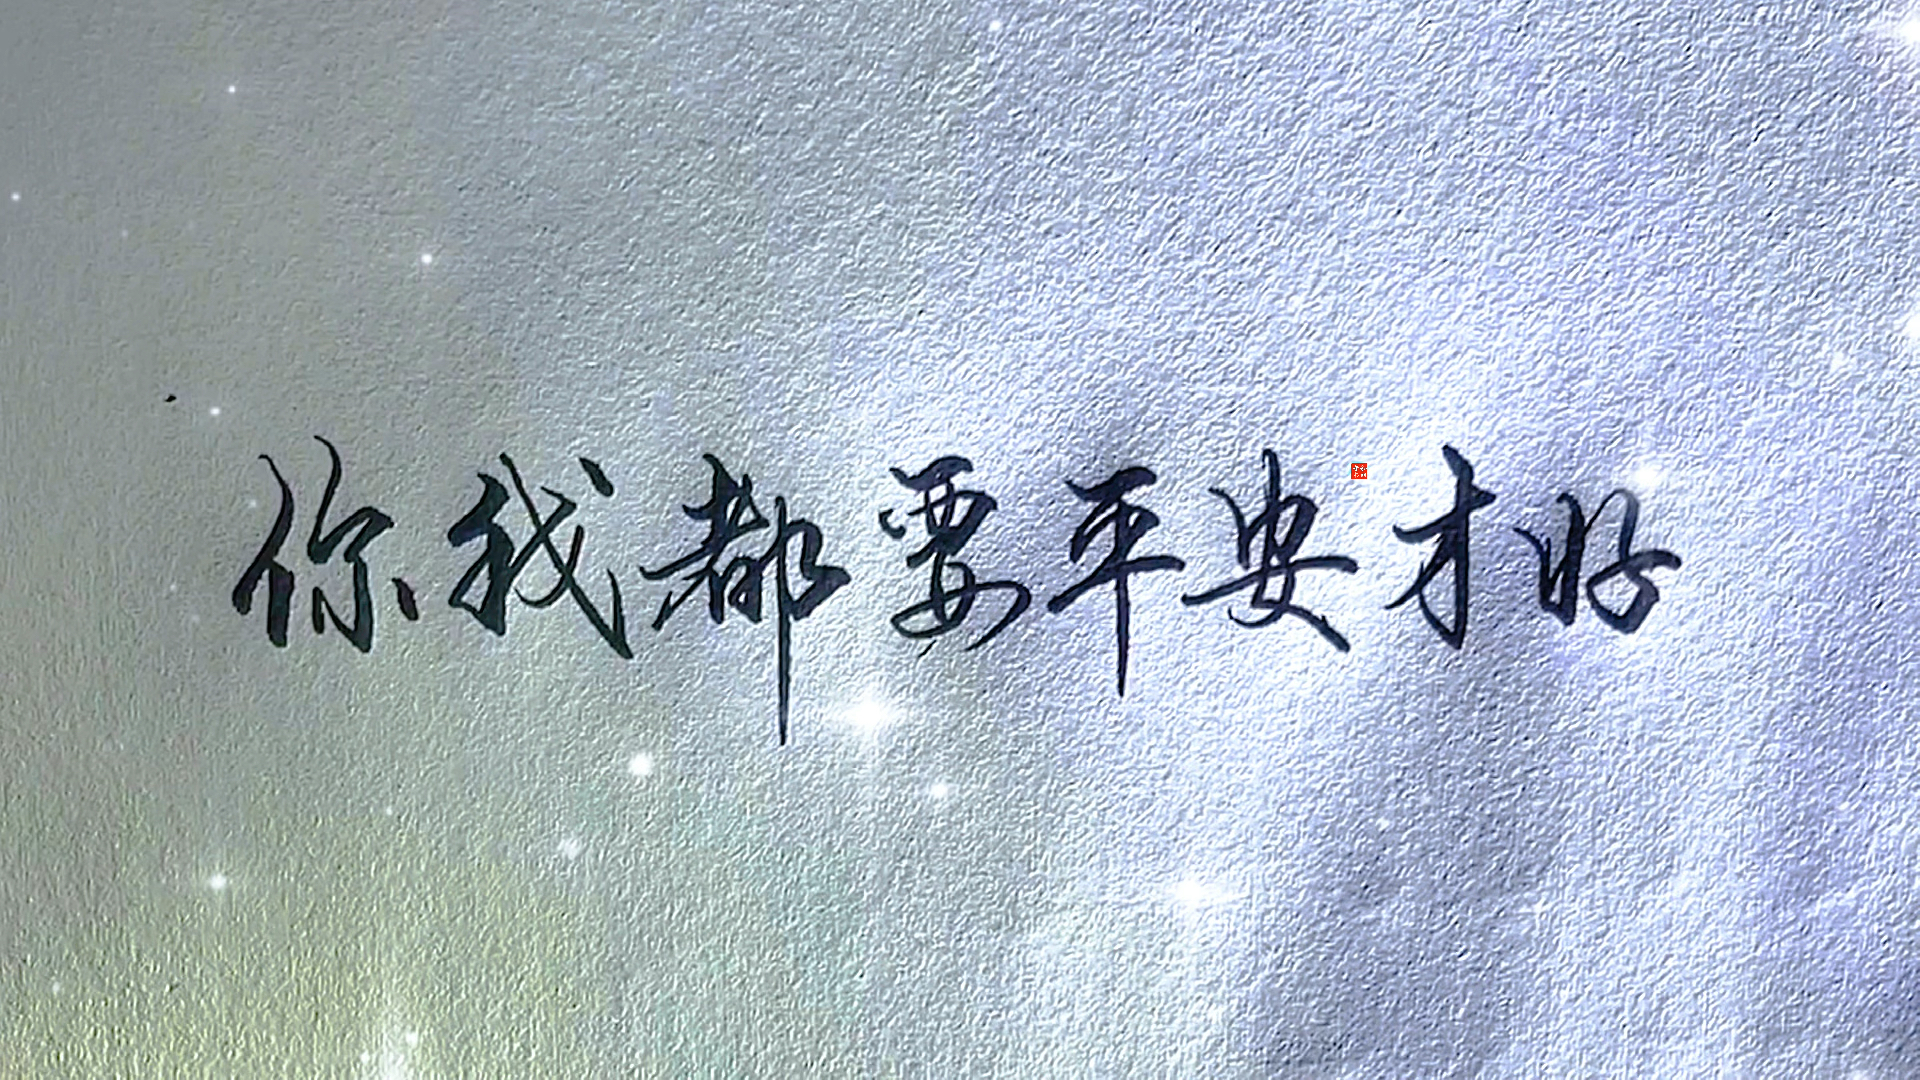 你我都要平安才好